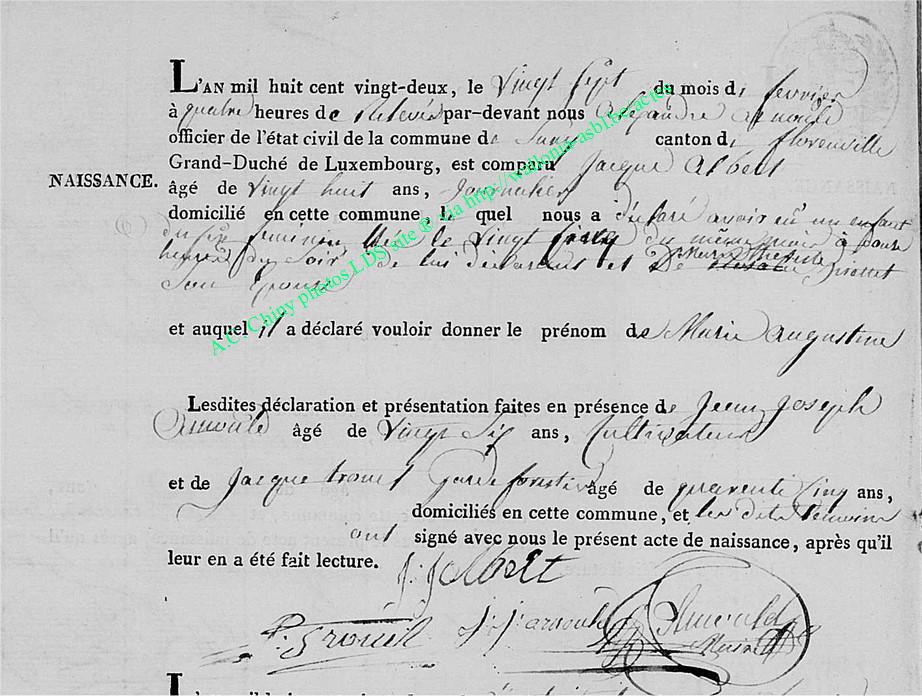 L'AN mil huit cent vingt-deux, le vingt sept du mois de fevrier
à quatre heures de relevée par-devant nous arnould
officier de l'état civil de la commune de canton de florenville
Grand-Duché de Luxembourg, est comparu Jacque Albert
NAISSANCE.
âgé de vingt huit ans, Journalier
domicilié en cette commune, le quel nous a déclaré avoir eu un enfant
du feminin née le vingt du même mois à
heures du Soir de lui déclarant et de
Son Epouse
et auquel il a déclaré vouloir donner le prénom de Marie augustine
Lesdites déclaration et présentation faites en présence de Jean Joseph
Arnould âgé de vingt Six ans, Cultivateur
et de Jacque garde forestier âgé de quarente Cinq ans,
domiciliés en cette commune, et les dits temoins
ont signé avec nous le présent acte de naissance, après qu'il
leur en a été fait lecture.
J: J albert
J: J: arnould Arnould
A.C. Chiny photos LDS site @ via http://wallonia-asbl.be/actea